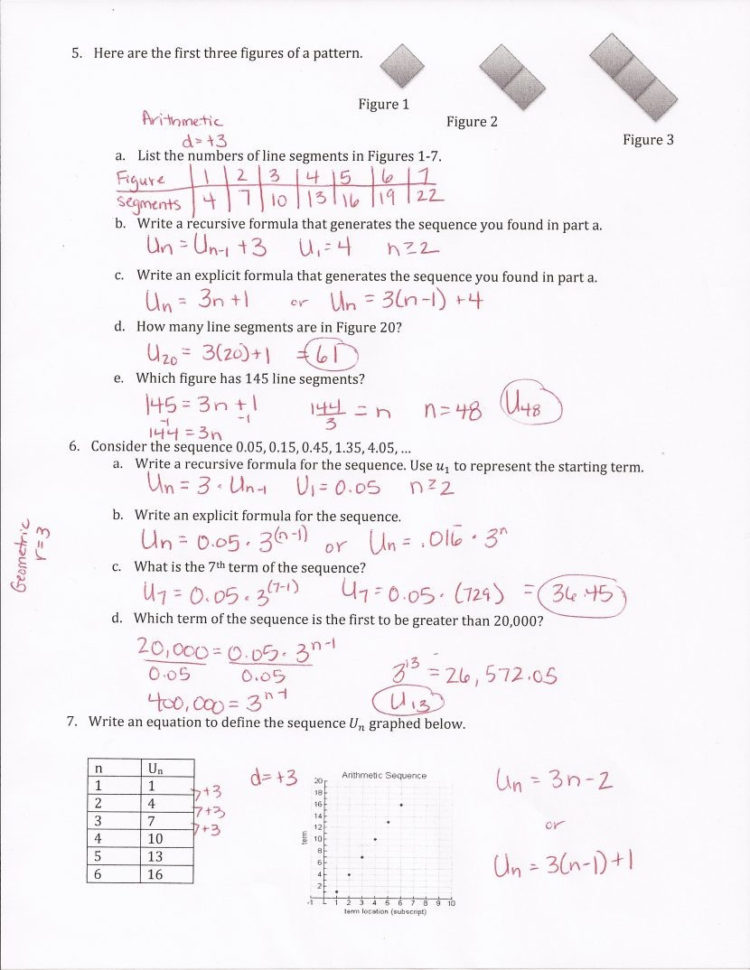 5. Here are the first three figures of a pattern.
Figure 1
Figure 2
Figure 3
Arithmetic
d=+3
a. List the numbers of line segments in Figures 1-7.
Figure | 1 | 2 | 3 | 4 | 5 | 6 | 7
segments | 4 | 7 | 10 | 13 | 16 | 19 | 22
b. Write a recursive formula that generates the sequence you found in part a.
Un = Un-1 +3 U1=4 n≥2
c. Write an explicit formula that generates the sequence you found in part a.
Un = 3n+1 or Un = 3(n-1) +4
d. How many line segments are in Figure 20?
U20 = 3(20)+1 = 61
e. Which figure has 145 line segments?
145 = 3n +1 144/3 = n n=48 U48
-1 -1
144 = 3n
6. Consider the sequence 0.05, 0.15, 0.45, 1.35, 4.05, ...
a. Write a recursive formula for the sequence. Use u1 to represent the starting term.
Un = 3 · Un-1 U1 = 0.05 n≥2
Geometric
r=3
b. Write an explicit formula for the sequence.
Un = 0.05 · 3^(n-1) or Un = .016̄ · 3^n
c. What is the 7th term of the sequence?
U7 = 0.05 · 3^(7-1) U7 = 0.05 · (729) = 36.45
d. Which term of the sequence is the first to be greater than 20,000?
20,000 = 0.05 · 3^n-1
0.05 0.05
3^13 = 26,572.05
400,000 = 3^n-1
U13
7. Write an equation to define the sequence Un graphed below.
n Un
1 1
2 4
3 7
4 10
5 13
6 16
+3
+3
+3
d=+3
Arithmetic Sequence
20
18
16
14
12
10
8
6
4
2
term
-1 1 2 3 4 5 6 7 8 9 10
term location (subscript)
Un = 3n-2
or
Un = 3(n-1)+1